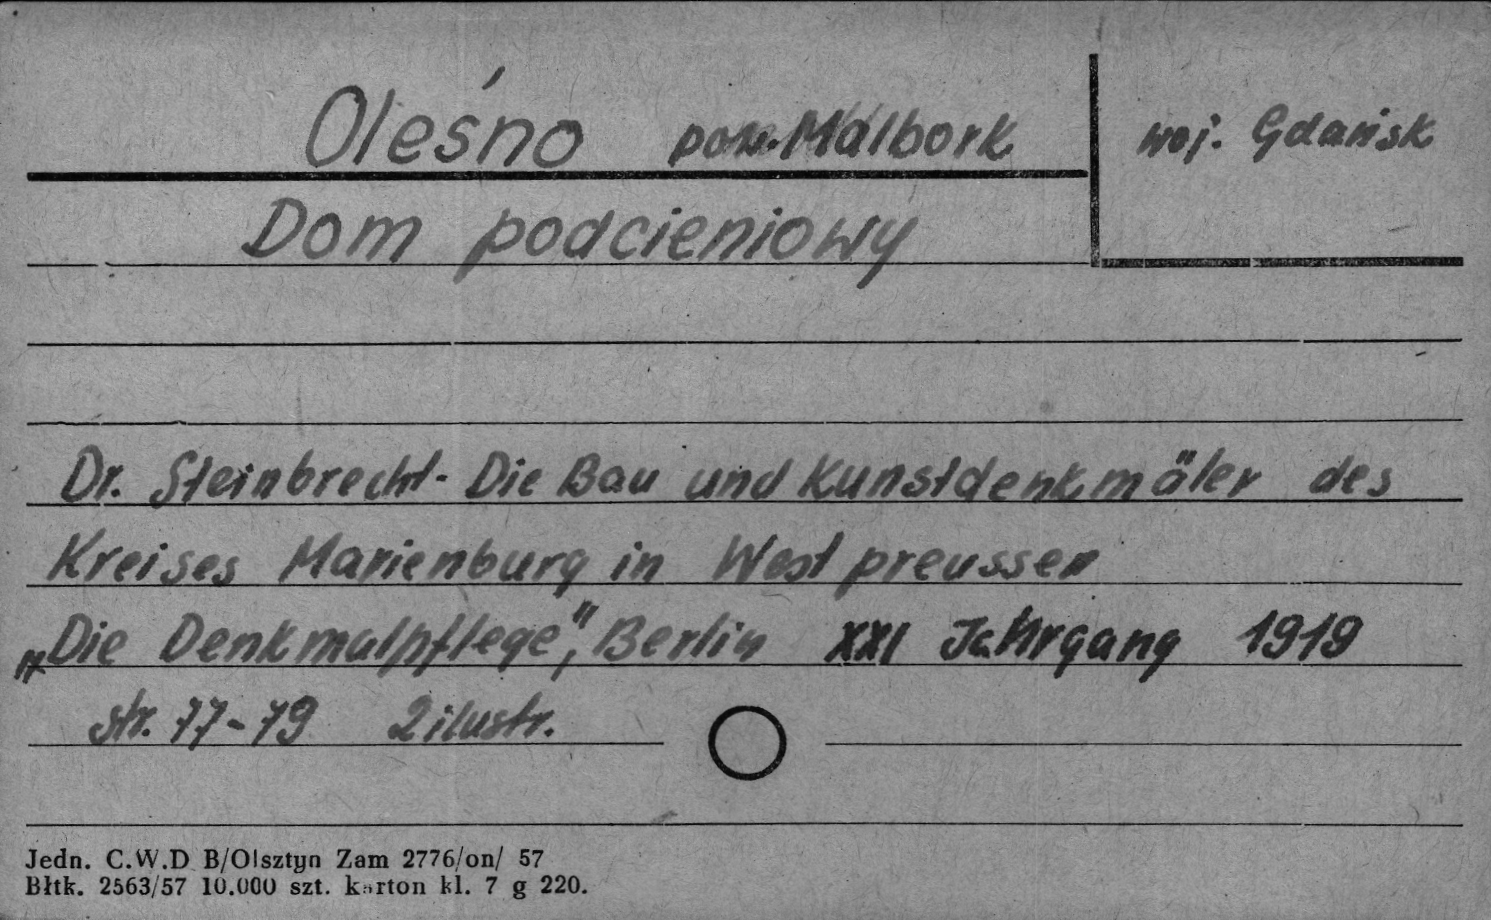 Oleśno pow. Malbork
woj. Gdańsk
Dom podcieniowy
Dr. Steinbrecht - Die Bau und Kunstdenkmäler des
Kreises Marienburg in Westpreussen
„Die Denkmalpflege", Berlin XXI Jahrgang 1919
str. 77-79 2 ilustr.
Jedn. C.W.D B/Olsztyn Zam 2776/on/ 57
Błtk. 2563/57 10.000 szt. karton kl. 7 g 220.